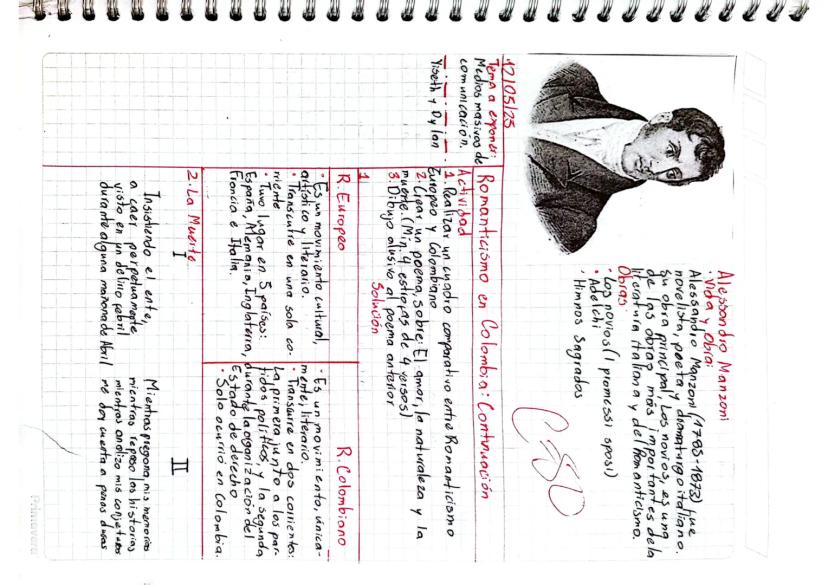 Alessandro Manzoni
· Vida y Obra:
Alessandro Manzoni (1785-1873) fue
novelista, poeta y dramaturgo italiano.
su obra principal, Los novios, es una
de las obras más importantes de la
literatura italiana y del Romanticismo.
Obras:
• Los novios (I promessi sposi)
• Adelchi
· Himnos Sagrados
C-80
12/05/25
Tema a exponer:
Medios masivos de
comunicación.
Yiseth y Dylan
Romanticismo en Colombia: Continuación
Actividad
1. Realizar un cuadro comparativo entre Romanticismo
Europeo y Colombiano
2. Crear un poema, sobre: El amor, la naturaleza y la
muerte. (Min. 4 estrofas de 4 versos)
3. Dibujo alusivo al poema anterior
Solución
1
R. Europeo
· Es un movimiento cultural,
artístico y literario.
· Transcurre en una sola co-
rriente
· Tuvo lugar en 5 países:
España, Alemania, Inglaterra,
Francia e Italia.
R. Colombiano
· Es un movimiento, única-
mente, literario.
· Transcurre en dos corrientes:
La primera junto a los par-
tidos políticos, y la segunda,
durante la organización del
Estado de derecho
· Solo ocurrió en Colombia.
2. La Muerte
I
Insistiendo el ente,
a caer perpetuamente
visto en un delirio febril
durante alguna mañana de Abril
II
Mientras pregona mis memorias
mientras repaso las historias
mientras analizo mis conjeturas
me doy cuenta a penas dudas
Primavera